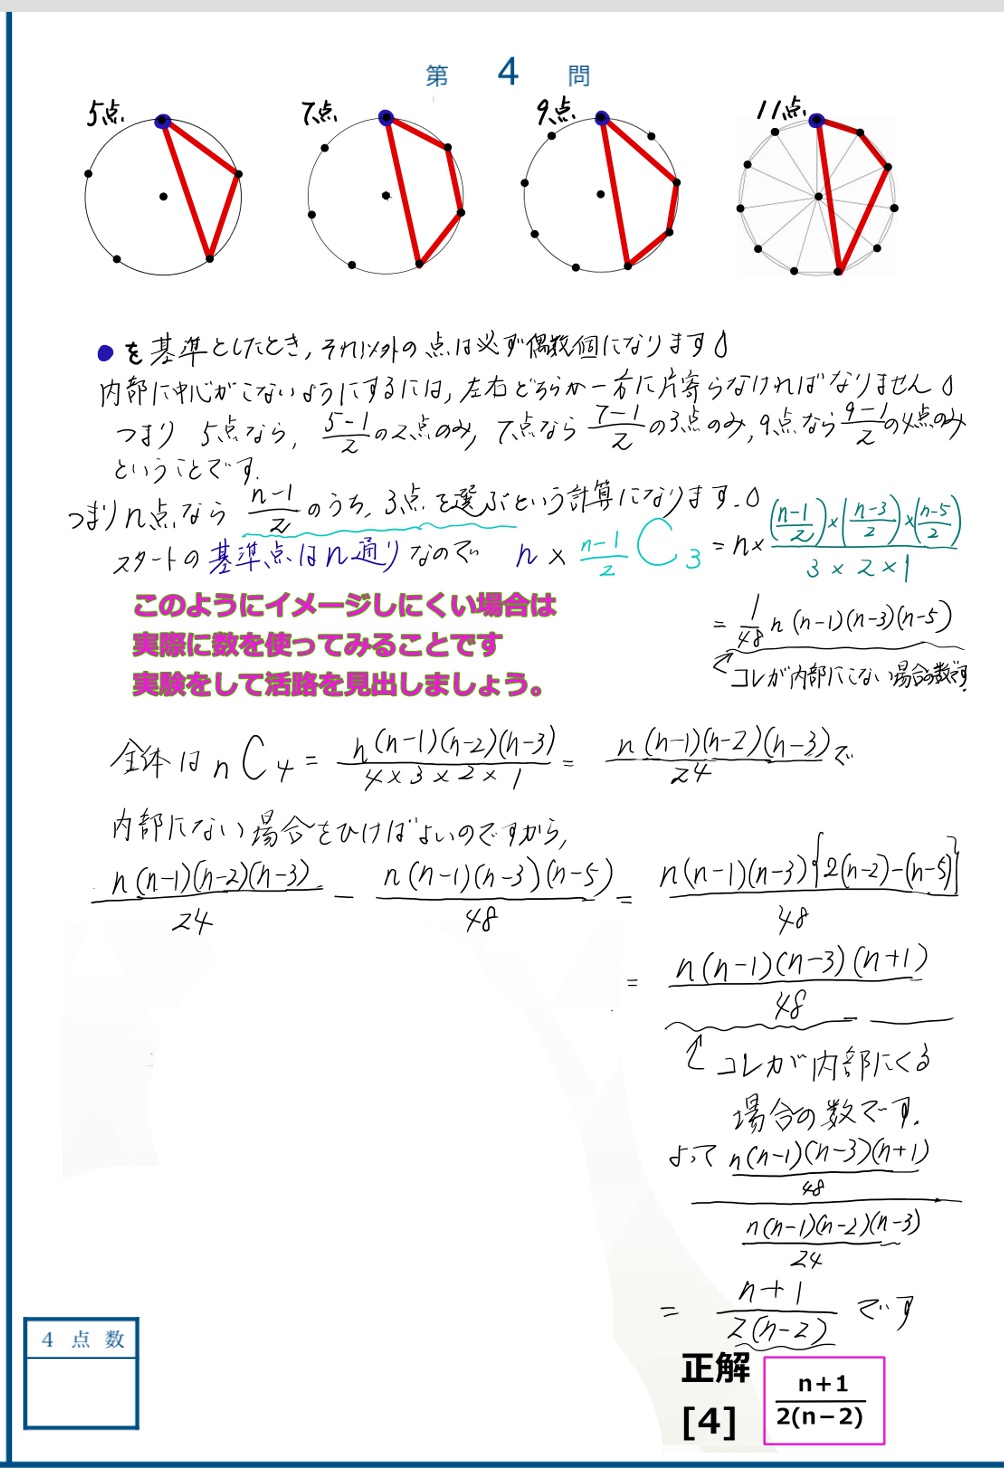 第 4 問
5点 7点 9点 11点
●を基準としたとき,それ以外の点は必ず偶数個になります。
内部に中心がこないようにするには,左右どちらか一方に片寄らなければなりません。
つまり 5点なら, (5-1)/2 の2点のみ, 7点なら (7-1)/2 の3点のみ, 9点なら (9-1)/2 の4点のみ
ということです.
つまりn点なら (n-1)/2 のうち, 3点を選ぶという計算になります.。
スタートの基準点はn通りなので n × (n-1)/2 C 3 = n × ((n-1)/2)×((n-3)/2)×((n-5)/2) / 3×2×1
このようにイメージしにくい場合は
実際に数を使ってみることです
実験をして活路を見出しましょう。
= 1/48 n (n-1)(n-3)(n-5)
コレが内部にこない場合の数です.
全体は nC4 = n(n-1)(n-2)(n-3) / 4×3×2×1 = n(n-1)(n-2)(n-3) / 24 で
内部にない場合をひけばよいのですから,
n(n-1)(n-2)(n-3) / 24 - n(n-1)(n-3)(n-5) / 48 = n(n-1)(n-3){2(n-2)-(n-5)} / 48
= n(n-1)(n-3)(n+1) / 48
コレが内部にくる
場合の数です.
よって n(n-1)(n-3)(n+1) / 48
n(n-1)(n-2)(n-3) / 24
= n+1 / 2(n-2) です
正解
[4] n+1 / 2(n-2)
4 点 数